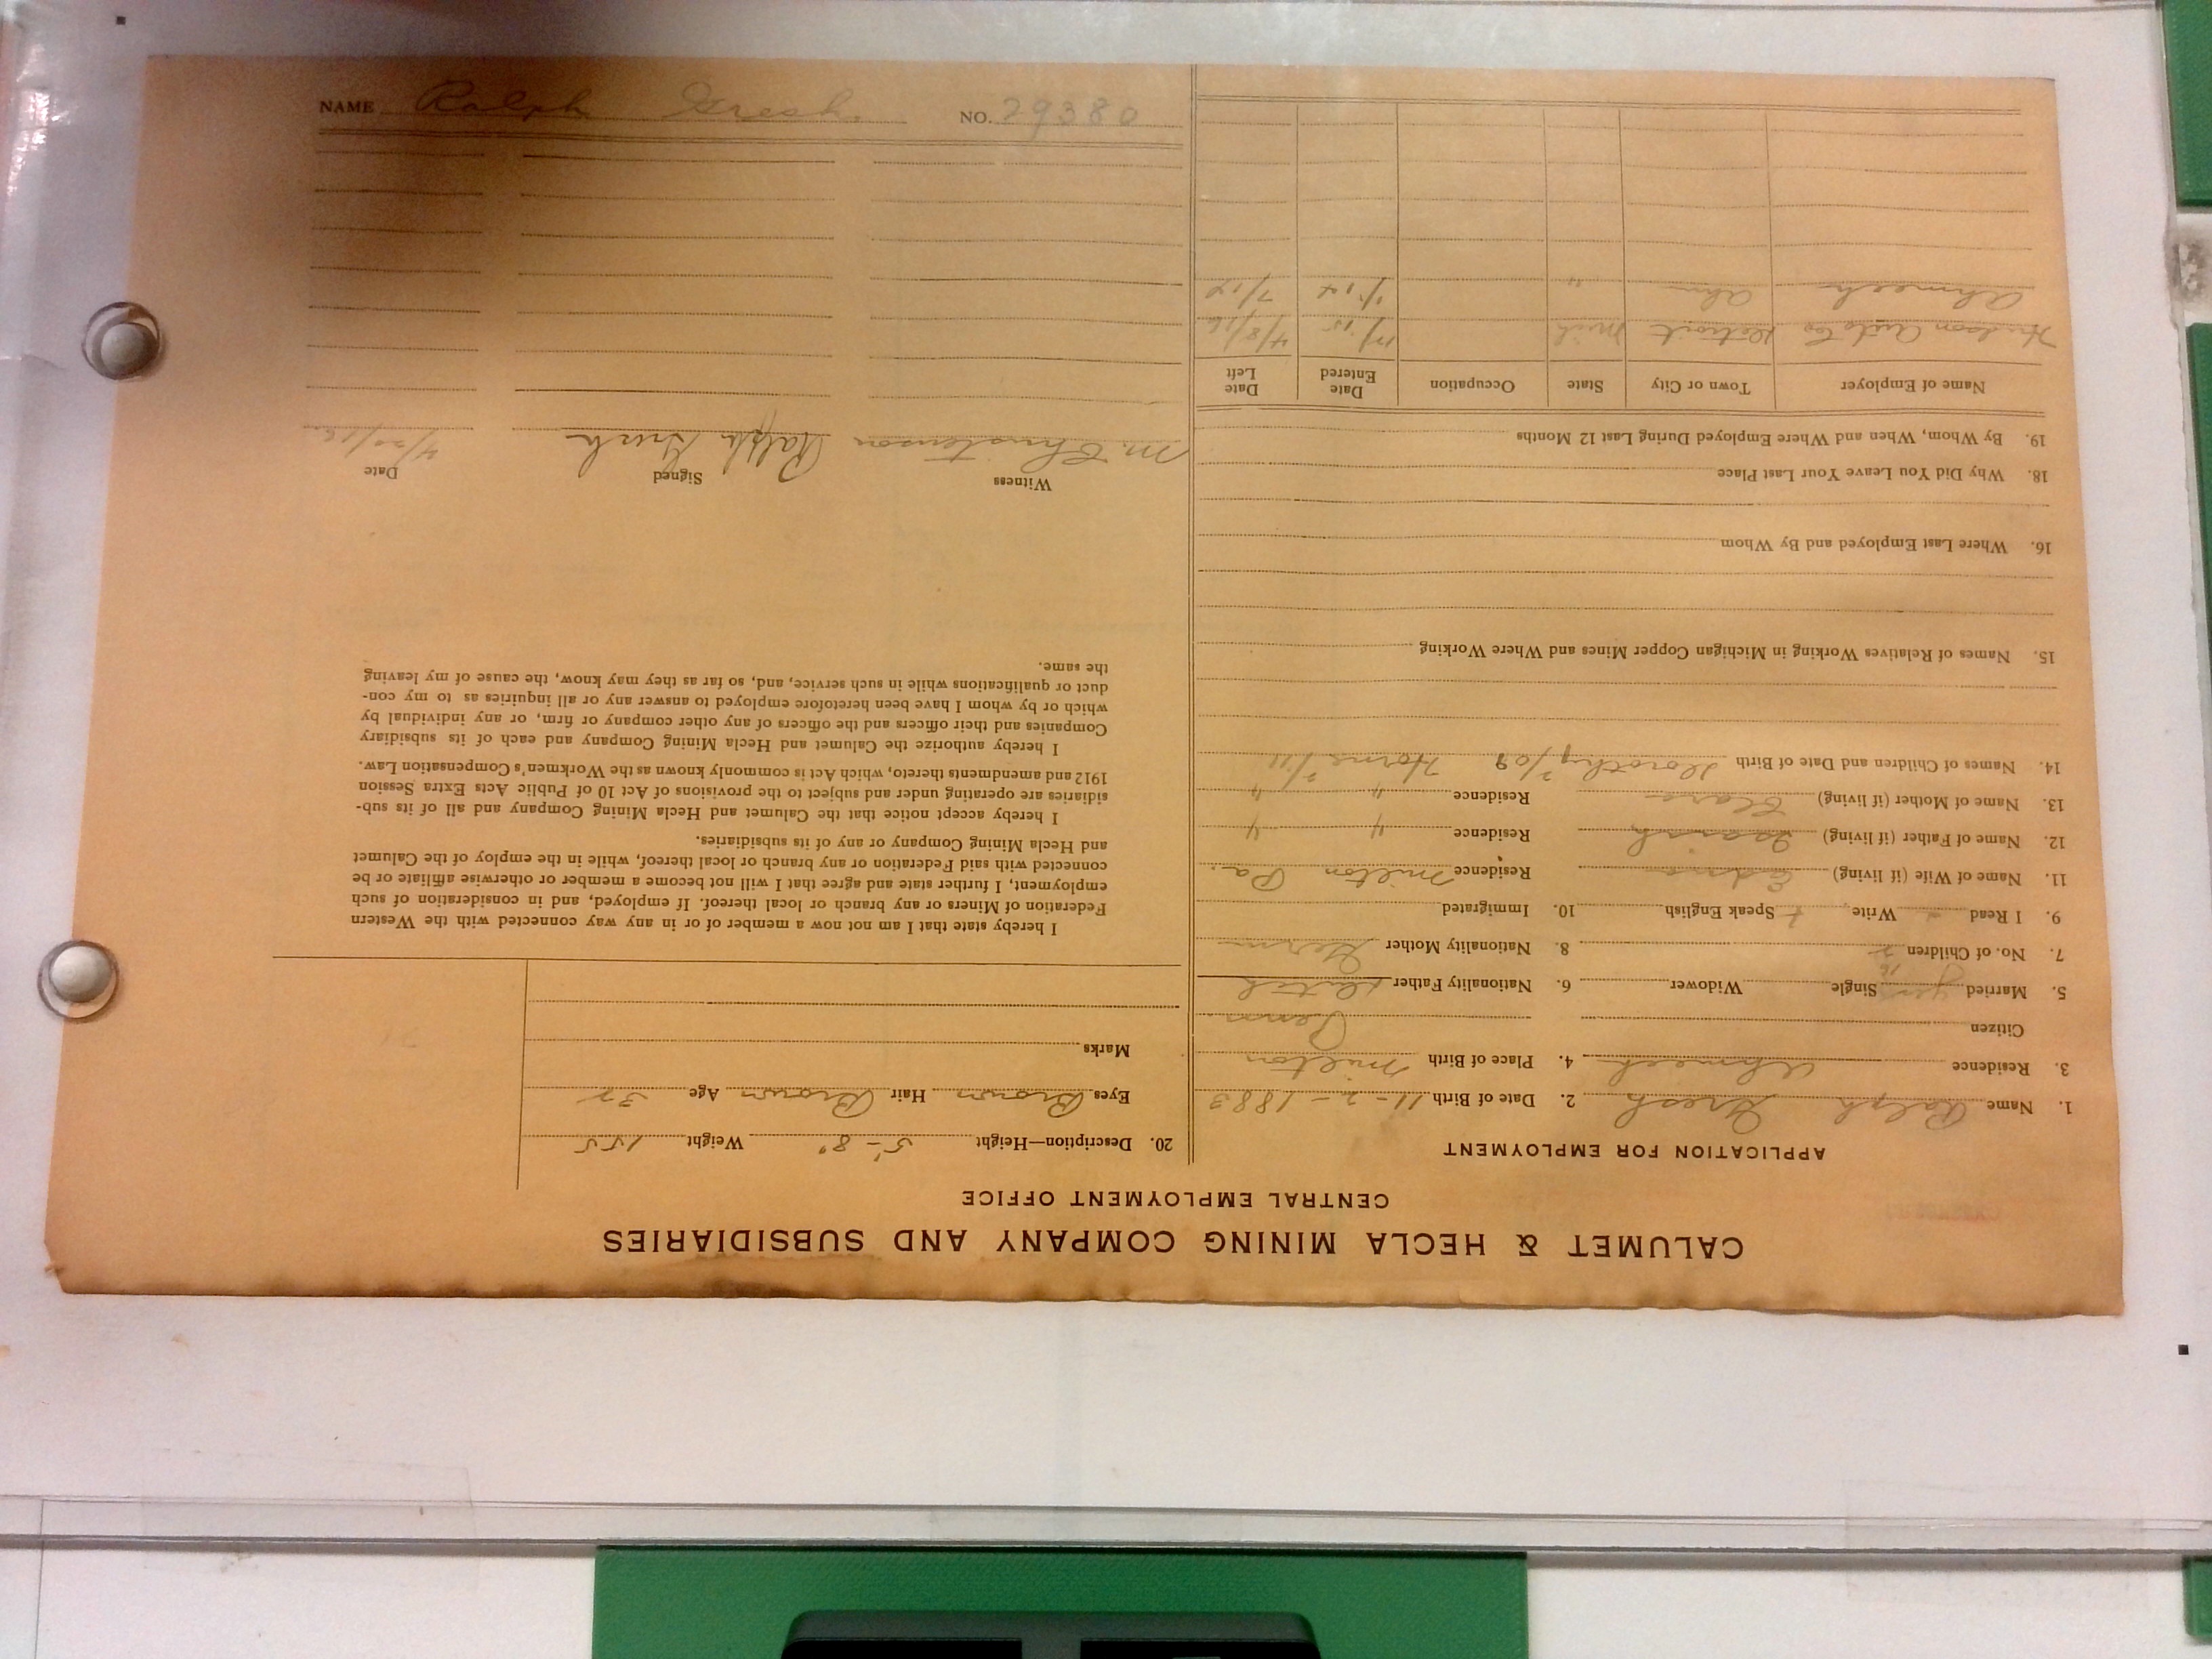 CALUMET & HECLA MINING COMPANY AND SUBSIDIARIES
CENTRAL EMPLOYMENT OFFICE
APPLICATION FOR EMPLOYMENT
1. Name Ralph Gresh 2. Date of Birth 11-2-1883
3. Residence Ahmeek 4. Place of Birth Milton
Citizen Penn
5. Married yes Single Widower 6. Nationality Father
7. No. of Children 2 8. Nationality Mother Germ
9. I Read Write Speak English 10. Immigrated
11. Name of Wife (if living) Edna Residence Milton Pa.
12. Name of Father (if living) Residence " "
13. Name of Mother (if living) Clara Residence " "
14. Names of Children and Date of Birth Dorothy 7/09
15. Names of Relatives Working in Michigan Copper Mines and Where Working
16. Where Last Employed and By Whom
18. Why Did You Leave Your Last Place
19. By Whom, When and Where Employed During Last 12 Months
Name of Employer Town or City State Occupation Date Entered Date Left
Hudson Auto Co Detroit Mich 11/15 4/8/16
Ahmeek Ahm " 1/14 7/14
20. Description—Height 5'-8" Weight 155
Eyes Brown Hair Brown Age 32
Marks
I hereby state that I am not now a member of or in any way connected with the Western
Federation of Miners or any branch or local thereof. If employed, and in consideration of such
employment, I further state and agree that I will not become a member or otherwise affiliate or be
connected with said Federation or any branch or local thereof, while in the employ of the Calumet
and Hecla Mining Company or any of its subsidiaries.
I hereby accept notice that the Calumet and Hecla Mining Company and all of its sub-
sidiaries are operating under and subject to the provisions of Act 10 of Public Acts Extra Session
1912 and amendments thereto, which Act is commonly known as the Workmen's Compensation Law.
I hereby authorize the Calumet and Hecla Mining Company and each of its subsidiary
Companies and their officers and the officers of any other company or firm, or any individual by
which or by whom I have been heretofore employed to answer any or all inquiries as to my con-
duct or qualifications while in such service, and, so far as they may know, the cause of my leaving
the same.
Witness Signed Date
M. Christenson Ralph Gresh 4/20/16
NAME Ralph Gresh. NO. 29380